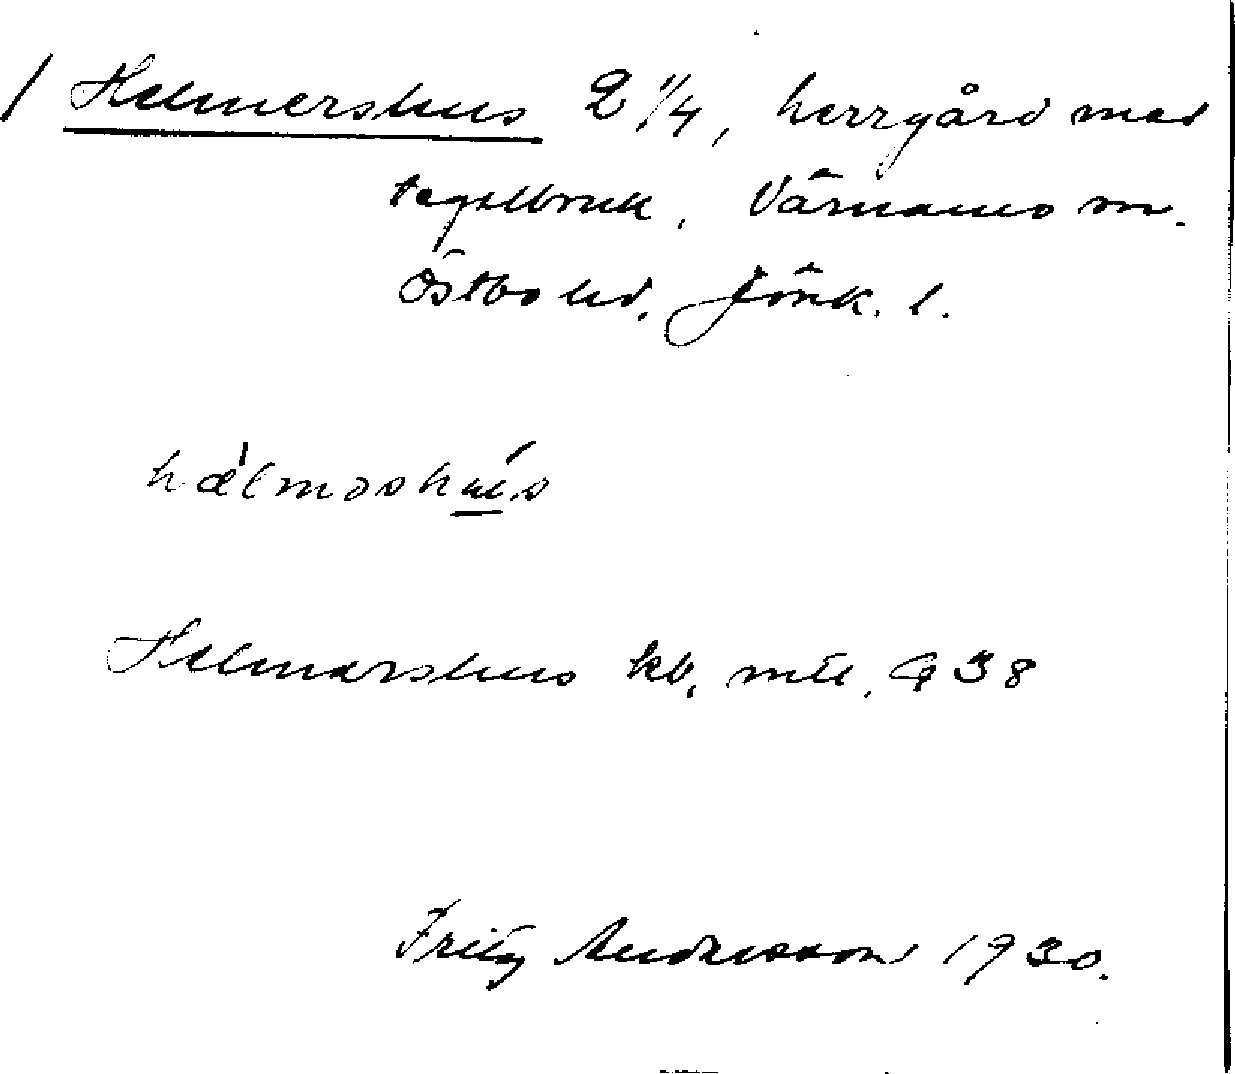 / Helmershus 2 1/4, herrgård med
tegelbruk, Värnamo sn.
Östbo hd, Jönk. l.
hæ̀lmashú̲s
Helmershus kb, mtl, G 38
Fritz Andersson 1930.